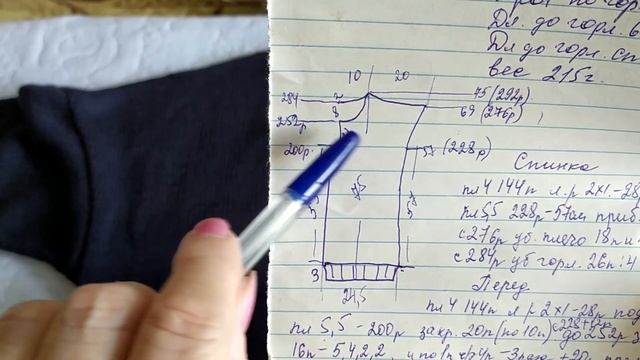 Дл. до горл. 6
Дл до горл. сп
вес 215г.
10 20
284 2 75 (292р)
252р 8 69 (276р)
200р. 57 (228р)
3
24,5
Спинка
пл 4 144п л.р 2х1-28р
пл 5,5 228р-57см приб
с 276р уб. плечо 18п и
с 284р уб горл. 26п:4
Перед
пл 4 144п л р 2х1-28р под
пл 5,5-200р закр. 20п (по 10п) до 252р
16п-5,4,2,2